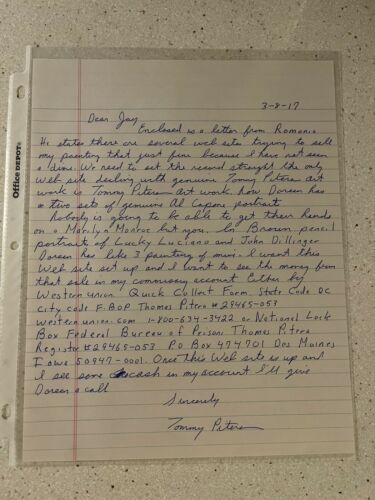 Office DEPOT
3-8-17
Dear Jay,
Enclosed is a letter from Romania
He states there are several web sites trying to sell
my painting that just fine because I have not seen
a dime. We need to set the record straight the only
Web site dealing with genuine Tommy Pitera art
work is Tommy Pitera art work. now Doreen has
a two sets of genuine Al Capone portraits
Nobody is going to be able to get their hands
on a Marilyn Monroe but you. In Brown pencil
portraits of Lucky Luciano and John Dillinger
Doreen has like 3 painting of mine. I want this
Web site set up and I want to see the money from
that sale in my commissary account Either by
Western union Quick Collect Form. State Code DC
City code F.BOP Thomas Pitera #29465-053
westernunion.com 1-800-634-3422 or National Lock
Box Federal Bureau of Prisons Thomas Pitera
Register #29465-053 PO Box 474701 Des Moines
Iowa 50947-0001. Once this Web site is up and
I see some cash in my account I'll give
Doreen a call
Sincerely
Tommy Pitera